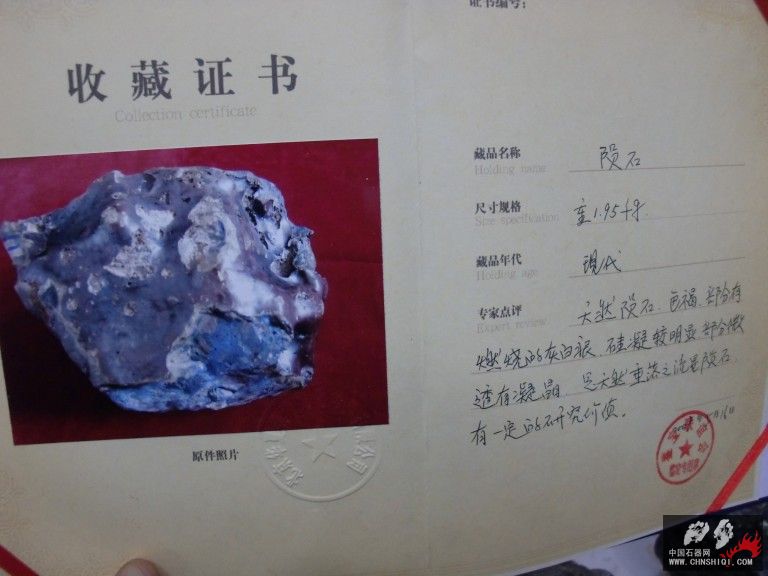 证书编号:
收藏证书
Collection certificate
藏品名称 陨石
Holding name
尺寸规格 重1.95千克
Size specification
藏品年代 现代
Holding age
专家点评 天然陨石.色褐.部分有
Expert review
燃烧的灰白痕.硅凝较明显部分微
透有凝晶.是天然重落之流星陨石.
有一定的研究价值。
原件照片
中国石器网
WWW.CHNSHIQI.COM